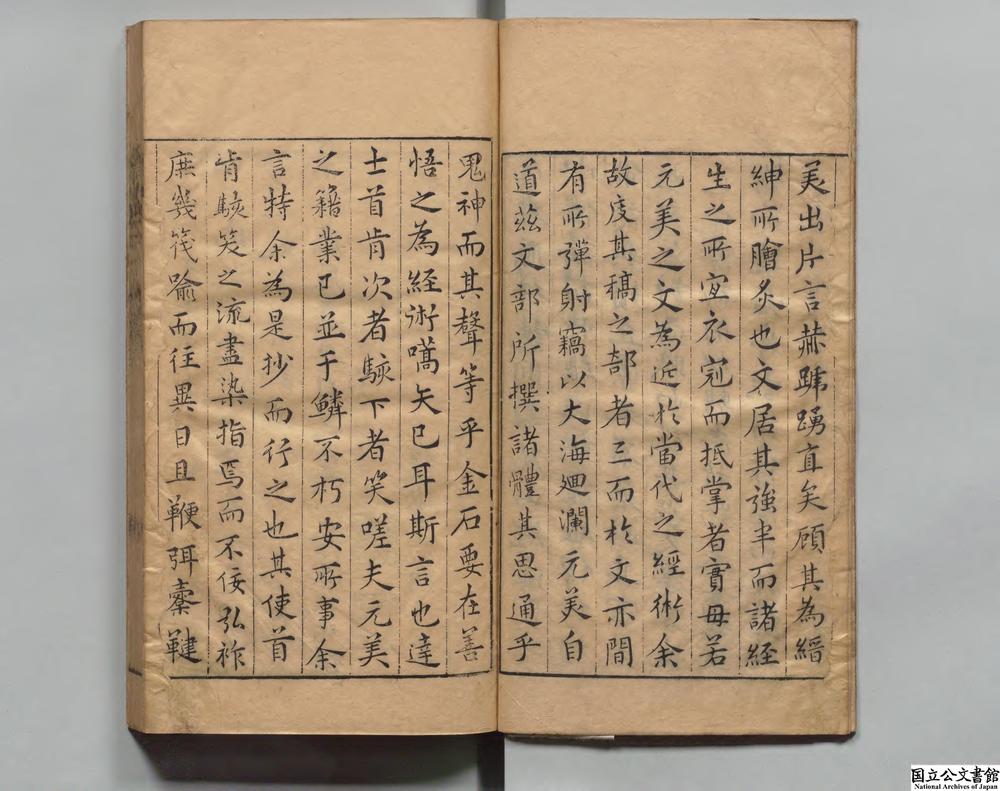 美出片言赫蹏踴直矣顧其為縉
紳所膾炙也文居其強半而諸經
生之所宜衣冠而抵掌者實毋若
元美之文為近於當代之經術余
故度其稿之部者三而於文亦間
有所彈射竊以大海廻瀾元美自
道茲文部所撰諸體其思通乎
鬼神而其聲等乎金石要在善
悟之為經術嚆矢已耳斯言也達
士首肯次者駭下者笑嗟夫元美
之籍業已並千鱗不朽安所事余
言特余為是抄而行之也其使首
肯駭笑之流盡染指焉而不佞弘祚
庶幾筏喻而往異日且鞭弭櫜鞬
国立公文書館
National Archives of Japan